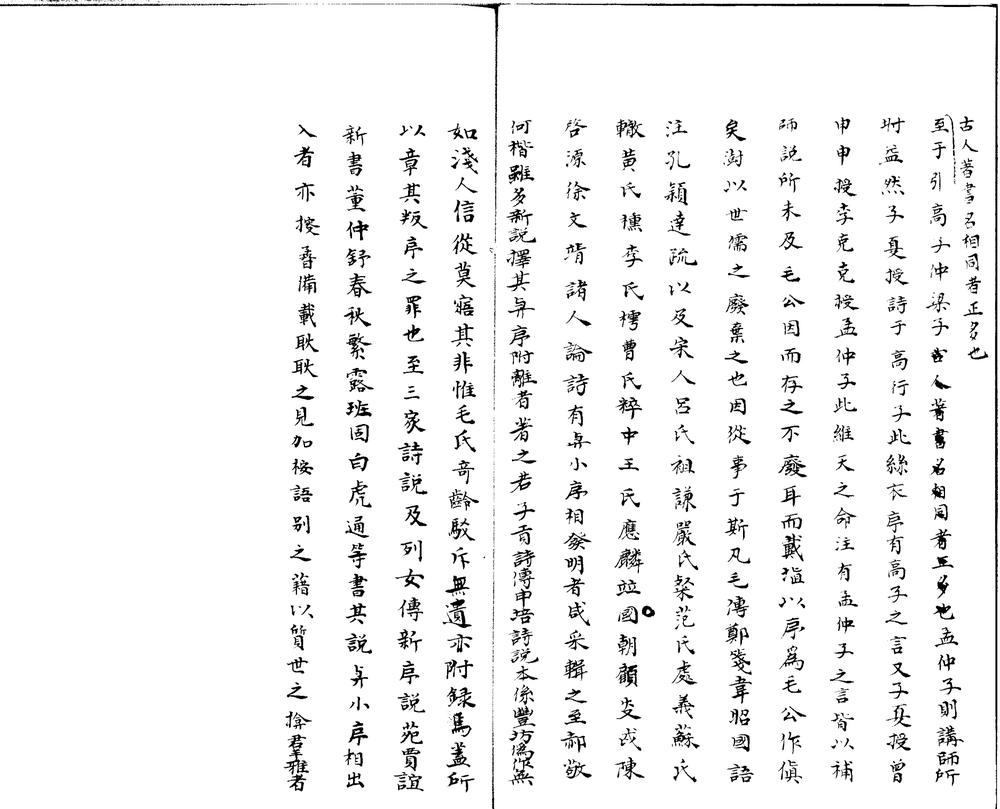 古人著書名相同者正多也
至于引高子仲梁子古人著書名相同者正多也孟仲子則講師所
時益然子夏授詩于高行子此絲衣序有高子之言又子夏授曾
申申授李克克授孟仲子此維天之命注有孟仲子之言皆以補
師說所未及毛公因而存之不廢耳而戴埴以序為毛公作傎
矣澍以世儒之廢棄之也因從事于斯凡毛傳鄭箋韋昭國語
注孔穎達疏以及宋人呂氏祖謙嚴氏粲范氏處義蘇氏
轍黃氏櫄李氏樗曹氏粹中王氏應麟竝國朝顧炎武陳
啓源徐文靖諸人論詩有與小序相發明者咸采輯之至郝敬
何楷雖多新說擇其與序附離者著之若子貢詩傳申培詩說本係豐坊偽作無
如淺人信從莫寤其非惟毛氏奇齡駁斥無遺亦附錄焉蓋所
以章其叛序之罪也至三家詩說及列女傳新序說苑賈誼
新書董仲舒春秋繁露班固白虎通等書其說與小序相出
入者亦搜香備載耿耿之見加桉語別之藉以質世之揜羣雅者